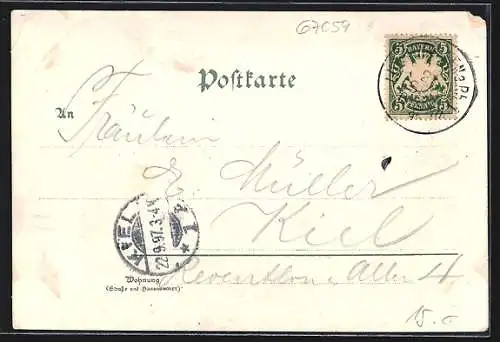 67059
BAYERN
5 5
5 PFENNIG 5
Postkarte
An
Fräulein
E. Müller
Kiel
KIEL
22.9.97.3-4N
* 1 *
Reventlow Allee 4
Wohnung
(Straße und Hausnummer)
15.-